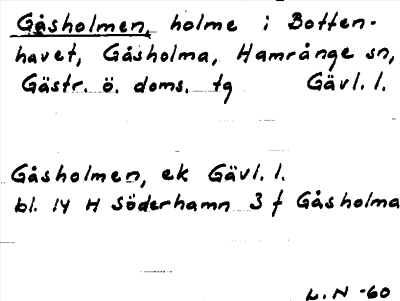 Gåsholmen, holme i Botten-
havet, Gåsholma, Hamrånge sn,
Gästr. ö. doms. tg Gävl. l.
Gåsholmen, ek Gävl. l.
bl. 14 H Söderhamn 3 f Gåsholma
L. N -60